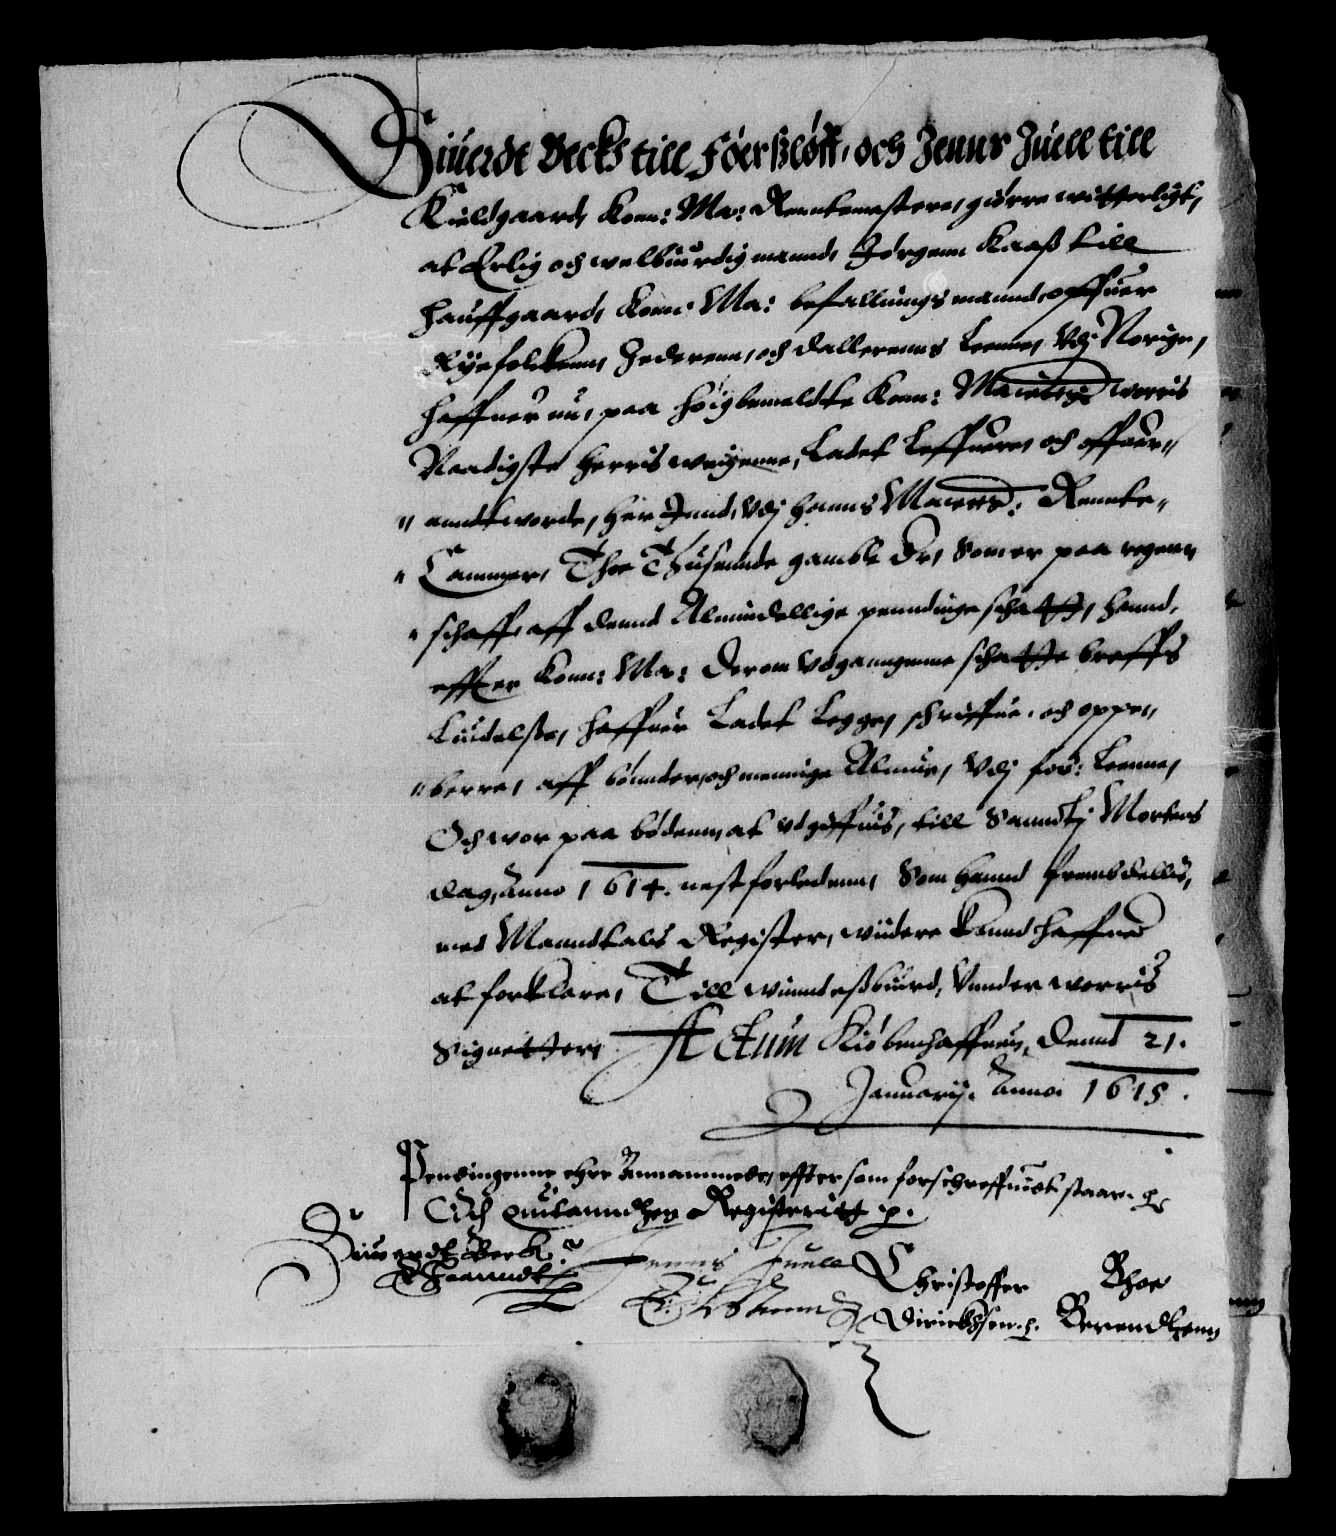 Siuerdt Becks till Föerßlöff, och Jenns Juell till
Kieldgaard, Konn: Ma: Renntemestere, giörre witterligt,
at Erlig och welbiurdig mannd, Jörgenn Kaaß till
Hauffgaard, Konn: Ma: befallnings mannd, offuer
Ryefolckenn, Jederenn, och Dallerenns Leenne, Vdj Norige,
haffuer nu, paa höigbemeldte Konn: Maiettz worris
Naadigste Herris weigenne, Ladet Leffuere, och offuer„
„ anndtworde, her Innd, Vdj hanns Maiettz: Rennte„
„ Cammer, Thoe Thusennde gamble Dr, Somer paa regenn„
„ schaff, aff dennd Almindellige penndinge schatt, hannd,
effter Konn: Ma: Derom Vdganngenne schatte breffs
liudelße, haffuer Ladet Legge, schriffue, och oppe„
„ berre, aff bönnder, och mennige Almue, Vdj for: Leenne,
Och wor paa bödenn, at vdgiffuis, till Sanndtj Mortens
dag, Anno 1614. nest forledenn, Som hannd frembdellis,
med Manndtals Register, wiidere kannd haffue
at forklare, Till winndeßbiurd, Vnnder worris
Signetter, Actum Kiöbenhaffnn, dennd 21.
Januarij. Anno. 1615.
Pendingenne ehre Annammede, effter som forschreffuedt staar.
Och quitanndtzen Registeritt
Siuerdt Beck Jenns Juell Christoffer Bhoe
Dirichsen. Berendtzenn